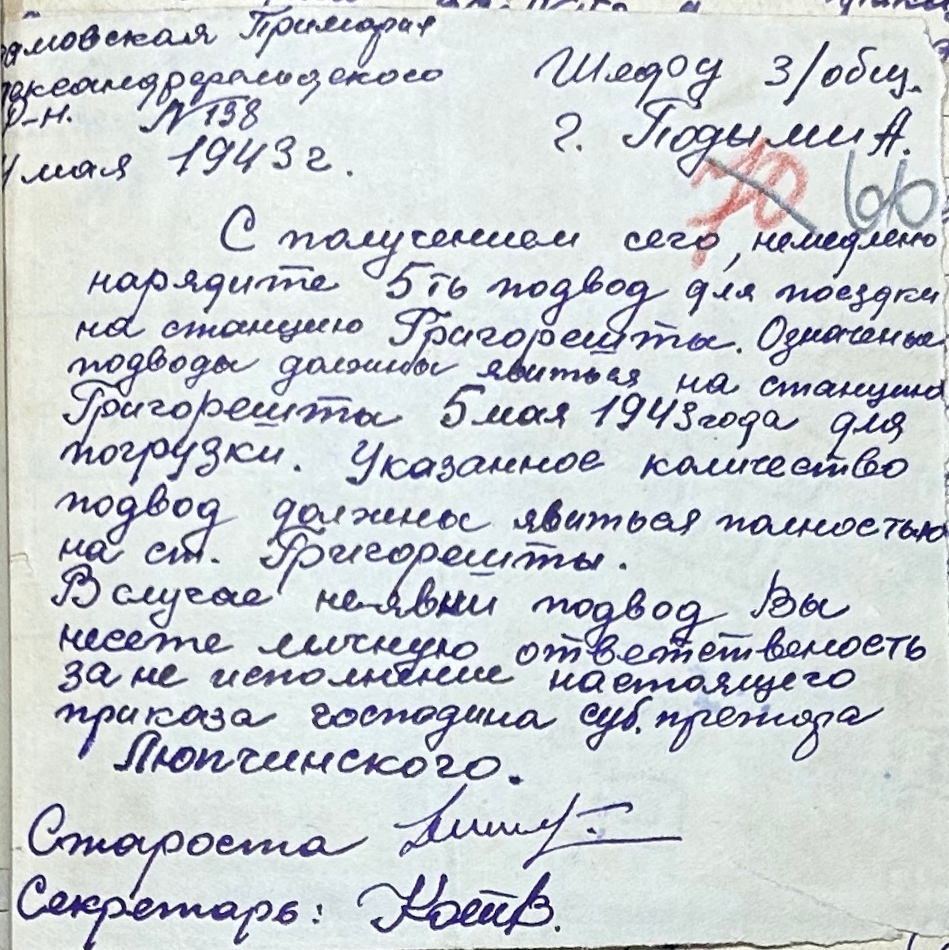 амовская Примария
ександрфельдского
р-н. №138
мая 1943 г.
Шефу 3/общ.
г. Подыми А.
70 66
С получением сего, немедлено
нарядите 5ть подвод для поездки
на станцию Григорешты. Означеные
подводы должны явиться на станцию
Григорешты 5 мая 1943 года для
погрузки. Указанное количество
подвод должны явиться полностью
на ст. Григорешты.
В случае неявки подвод Вы
несете личную ответственость
за не исполнение настоящего
приказа господина суб. претора
Люпчинского.
Староста
Секретарь: Котв.